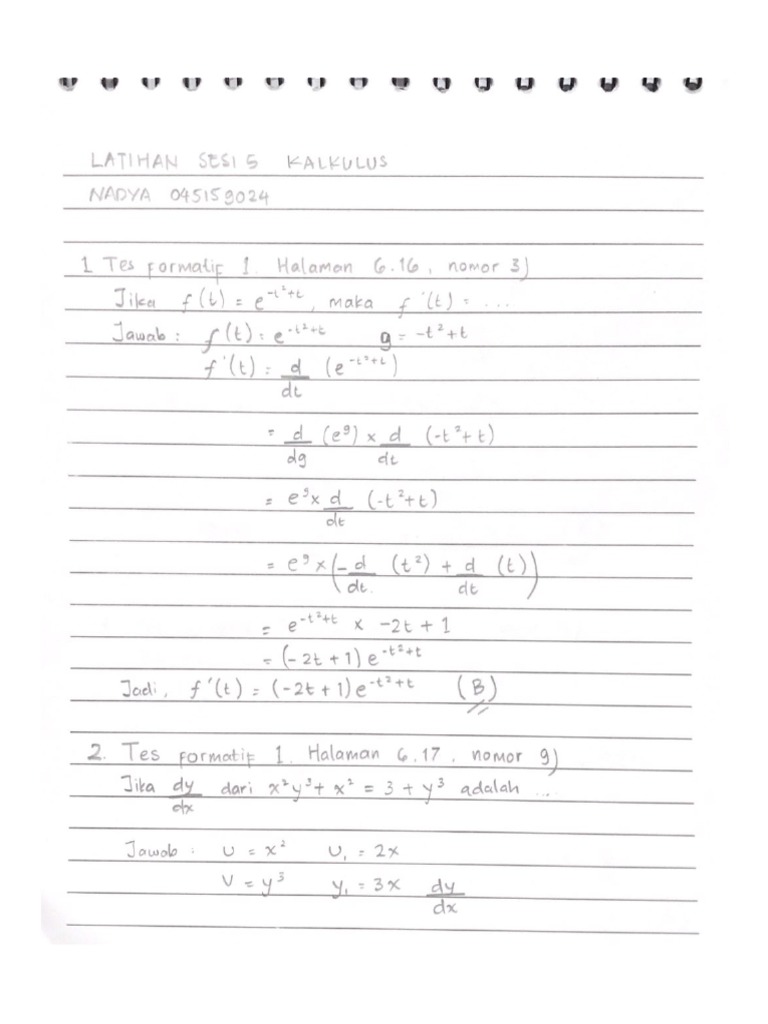 LATIHAN SESI 5 KALKULUS
NADYA 045159024
1 Tes formatif 1. Halaman 6.16, nomor 3)
Jika f(t) = e^{-t²+t}, maka f'(t) = ...
Jawab : f(t) = e^{-t²+t} g = -t²+t
f'(t) = d/dt (e^{-t²+t})
= d/dg (e^g) x d/dt (-t²+t)
= e^g x d/dt (-t²+t)
= e^g x (-d/dt. (t²) + d/dt (t))
= e^{-t²+t} x -2t + 1
= (-2t + 1) e^{-t²+t}
Jadi, f'(t) = (-2t + 1) e^{-t²+t} (B)
2. Tes formatif 1. Halaman 6.17. nomor 9)
Jika dy/dx dari x²y³ + x² = 3 + y³ adalah ...
Jawab : U = x² U₁ = 2x
V = y³ y₁ = 3x dy/dx